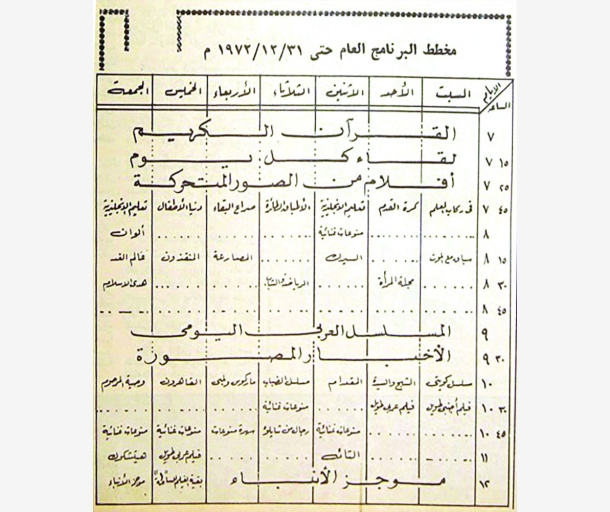 مخطط البرنامج العام حتى ١٩٧٢/١٢/٣١ م
الأيام السبت الأحد الاثنين الثلاثاء الأربعاء الخميس الجمعة
الساعة
٧ القرآن الكريم
٧ ١٥ لقاء كل يوم
٧ ٢٥ أفلام من الصور المتحركة
٧ ٤٥ في ركاب العلم كرة القدم تعليم الإنجليزية الأطباق الطائرة صراع البقاء دنيا الأطفال تعليم الإنجليزية
٨ منوعات غنائية ألوان
٨ ١٥ سباق مع الموت السيرك المصارعة المنقذون عالم الغد
٨ ٣٠ مجلة المرأة الرياضة والشباب هدى الاسلام
٨ ٤٥
٩ المسلسل العربي اليومي
٩ ٣٠ الأخبار المصورة
١٠ مسلسل كويتي الشيخ والسيرة المقدام مسلسل الضباب ماركوس ولبى القاهرون وصية المرحوم
١٠ ٣٠ فيلم أجنبي طويل فيلم عربي طويل منوعات غنائية
١٠ ٤٥ منوعات غنائية رجال من تايلو سهرة منوعات منوعات غنائية منوعات غنائية
١١ الثالث فيلم عربي طويل هيتشكوك
١٢ موجز الأنباء بقية الفيلم موجز الأنباء